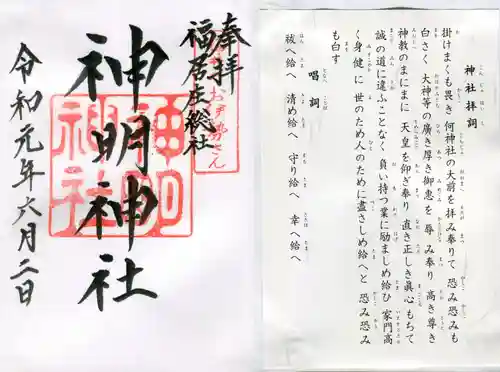 奉拝
福居庄総社
神明神社
神明神社
令和元年六月二日
神社拝詞
掛けまくも畏き 何神社の大前を 拝み奉りて 恐み恐みも
白さく 大神等の 廣き厚き御恵を 辱み奉り 高き尊き
神教のまにまに 天皇を仰ぎ奉り 直き正しき眞心もちて
誠の道に違ふことなく 負い持つ業に励ましめ給ひ 家門高
く身健に 世のため人のために盡さしめ給へと 恐み恐み
も白す
唱詞
祓へ給へ 清め給へ 守り給へ 幸へ給へ